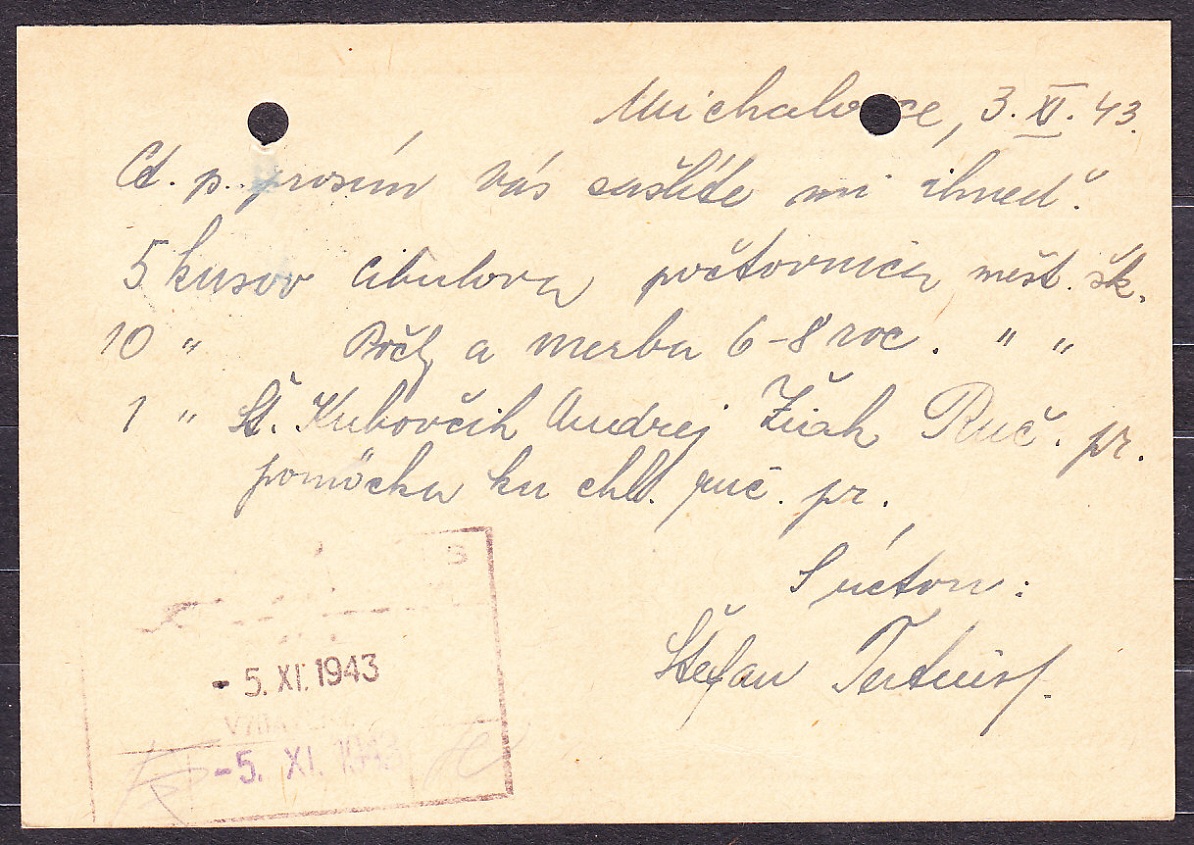 Michalovce, 3. XI. 43.
Ct. p. prosím vás zašlite mi ihneď.
5 kusov Cibulova počtovnica mešt. šk.
10 " Počty a merba 6-8 roč. " "
1 " Št. Kubovčik Andrej Žiak Ruč. pr.
pomôcka ku chlt. ruč. pr.
S úctou:
Štefan
- 5. XI. 1943
- 5. XI. 1943